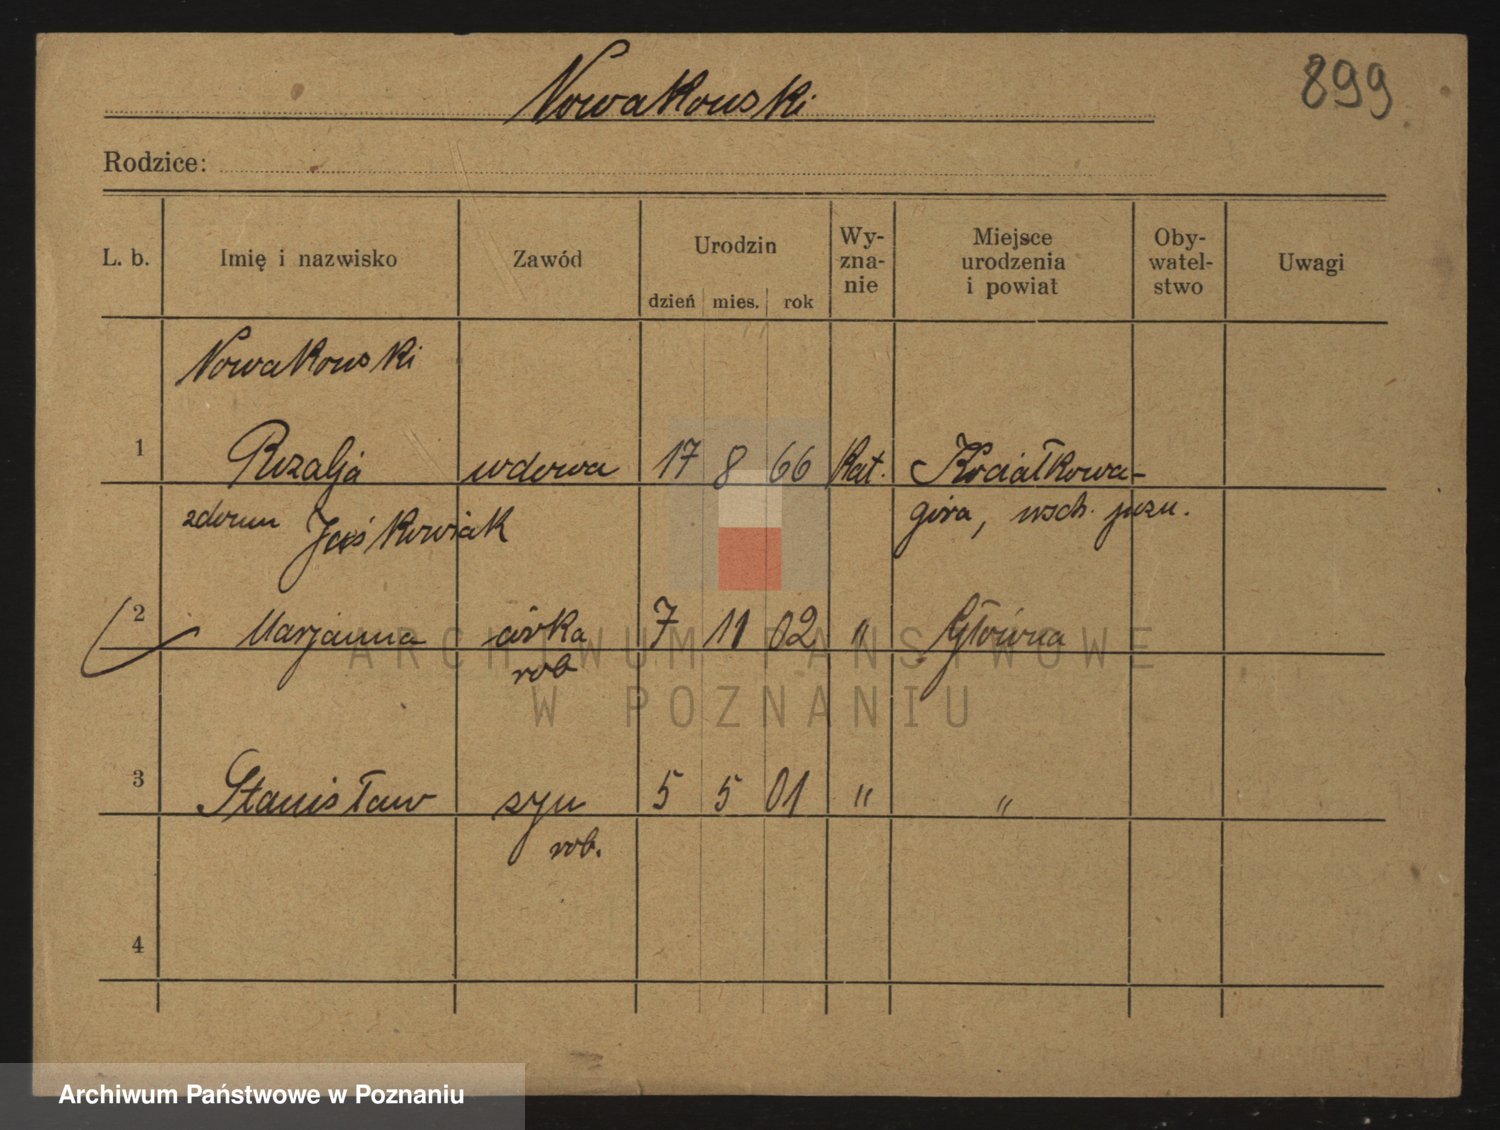 Nowakowski
899
Rodzice:
L. b. Imię i nazwisko Zawód Urodzin dzień mies. rok Wy-zna-nie Miejsce urodzenia i powiat Oby-watel-stwo Uwagi
Nowakowski
1 Rozalja wdowa 17 8 66 kat. Kociałkowa-
zdomu Jaśkowiak góra, wsch. pozn.
2 Marjanna córka 7 11 02 " Główna
rob
3 Stanisław syn 5 5 01 " "
rob.
4
ARCHIWUM PAŃSTWOWE
W POZNANIU
Archiwum Państwowe w Poznaniu